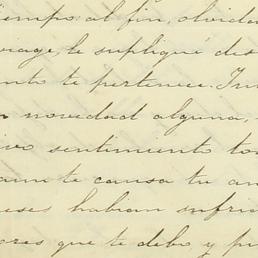 tiempo: al fin, olvida
viage, le supliqué des
nto te pertenece. In
novedad alguna,
ivo sentimiento to
ame te causa tu an
eses habian sufri
ores que te debo, y pu